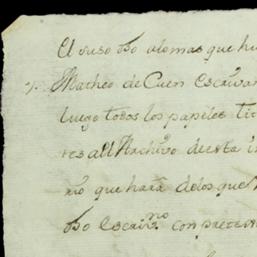 El suso dho ademas que hu
Matheo de Cuen Escrivan
luego todos los papeles
res al Archivo de esta
rio que hará de los que
dho Escriv.no con pretest